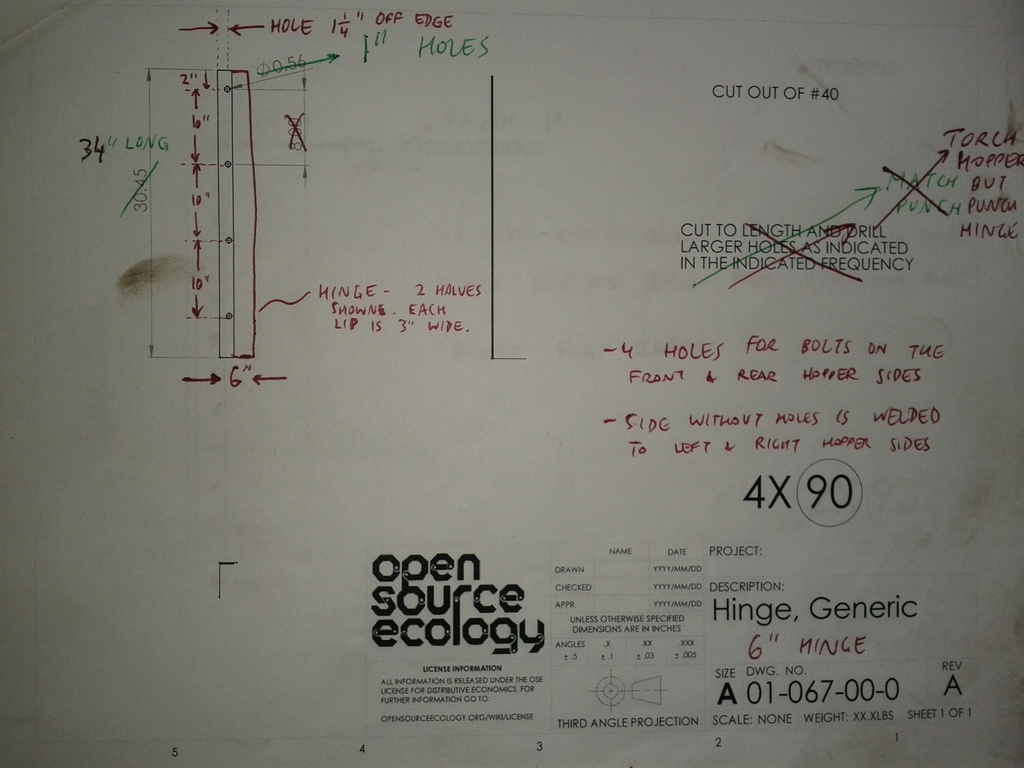 CUT OUT OF #40
HOLE 1 1/4" OFF EDGE
1" HOLES
Ø0.56
34" LONG
30.45
2"
10"
10"
10"
6"
HINGE - 2 HALVES
SHOWN. EACH
LIP IS 3" WIDE.
CUT TO LENGTH AND DRILL
LARGER HOLES AS INDICATED
IN THE INDICATED FREQUENCY
TORCH
HOPPER
MATCH BUT
PUNCH PUNCH
HINGE
- 4 HOLES FOR BOLTS ON THE
FRONT & REAR HOPPER SIDES
- SIDE WITHOUT HOLES IS WELDED
TO LEFT & RIGHT HOPPER SIDES
4X 90
open
source
ecology
LICENSE INFORMATION
ALL INFORMATION IS RELEASED UNDER THE OSE
LICENSE FOR DISTRIBUTIVE ECONOMICS. FOR
FURTHER INFORMATION GO TO:
OPENSOURCEECOLOGY.ORG/WIKI/LICENSE
NAME DATE
DRAWN YYYY/MM/DD
CHECKED YYYY/MM/DD
APPR. YYYY/MM/DD
UNLESS OTHERWISE SPECIFIED
DIMENSIONS ARE IN INCHES
ANGLES .X .XX .XXX
± .5 ± .1 ± .03 ± .005
THIRD ANGLE PROJECTION
PROJECT:
DESCRIPTION:
Hinge, Generic
6" HINGE
SIZE DWG. NO. REV
A 01-067-00-0 A
SCALE: NONE WEIGHT: XX.XLBS SHEET 1 OF 1
5 4 3 2 1